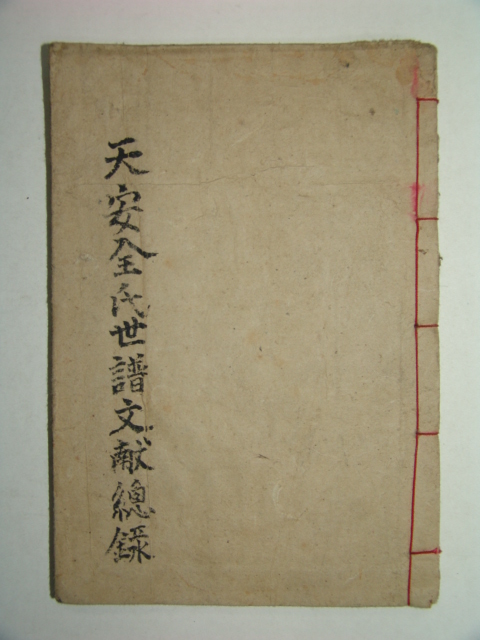 天安全氏世譜文献總錄